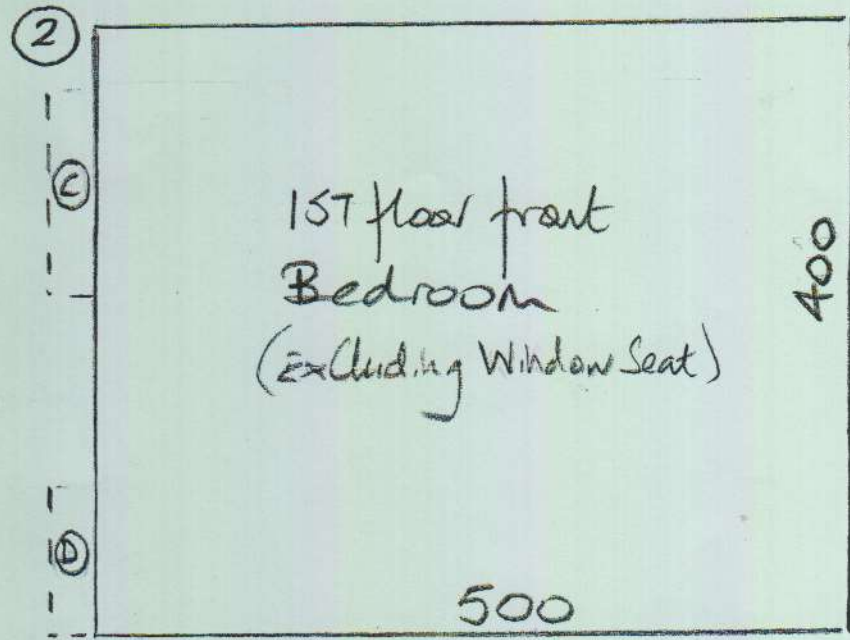 2
C
1ST floor front
Bedroom
(Excluding Window Seat)
400
D
500